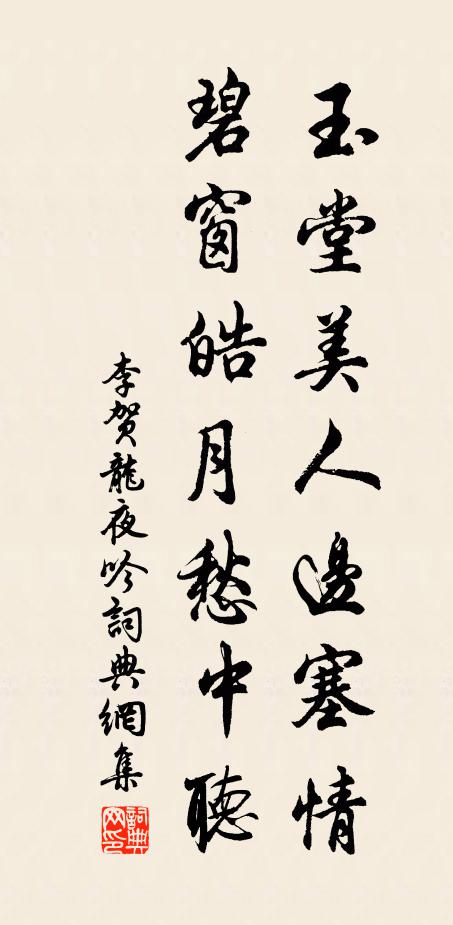 玉堂美人邊塞情
碧窗皓月愁中聽
李賀龍夜吟詞典網集
詞典
网印